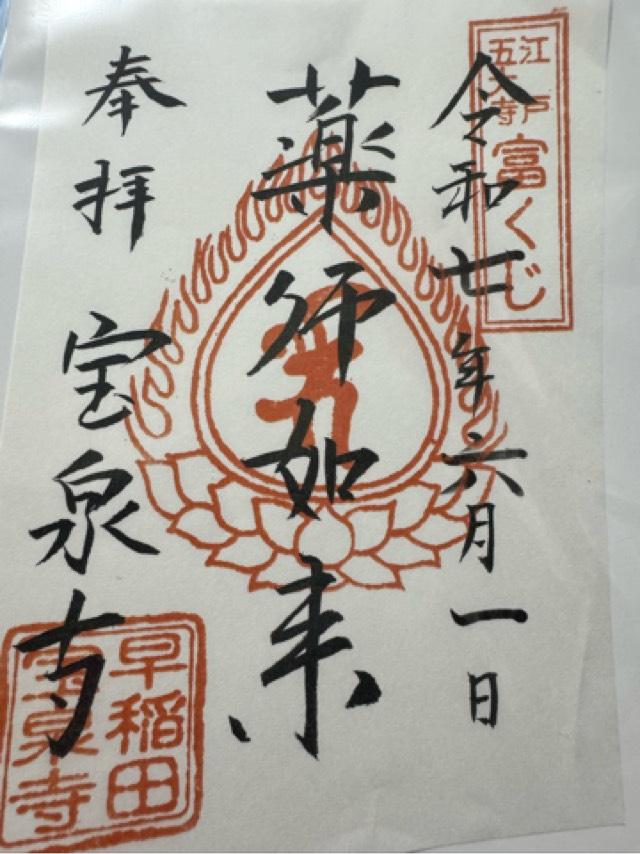 江戸
五大寺
富くじ
令和七年六月一日
薬師如来
奉拝 宝泉寺
早稲田
宝泉寺